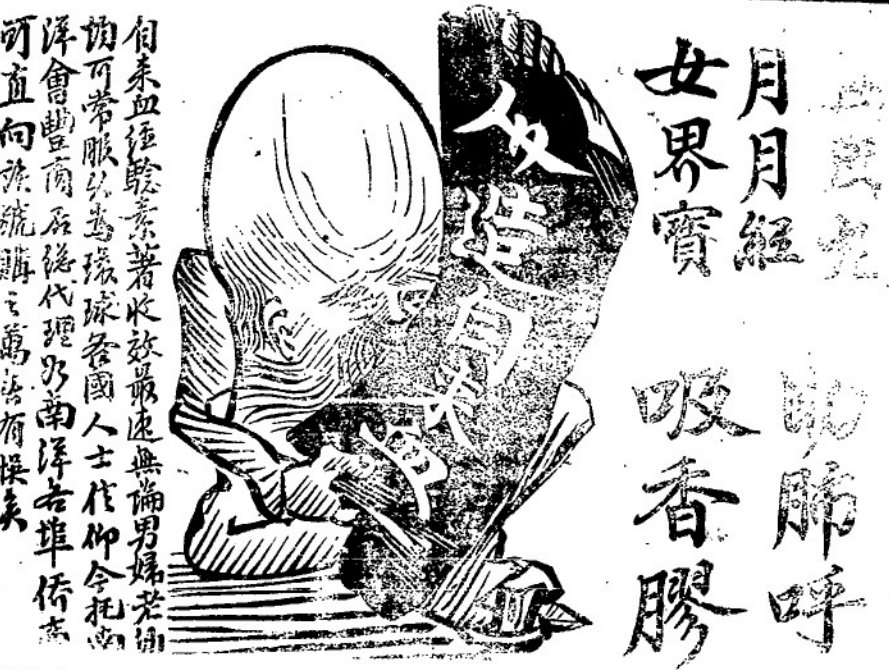 丸
月月經
女界寶
助肺呼
吸香膠
人造自來血
自来血經驗素著收效最速無論男婦老幼
均可常服 環球各國人士信仰今托南
洋會豐商店總代理 南洋各埠僑商
可直向該號購之萬 有悞矣